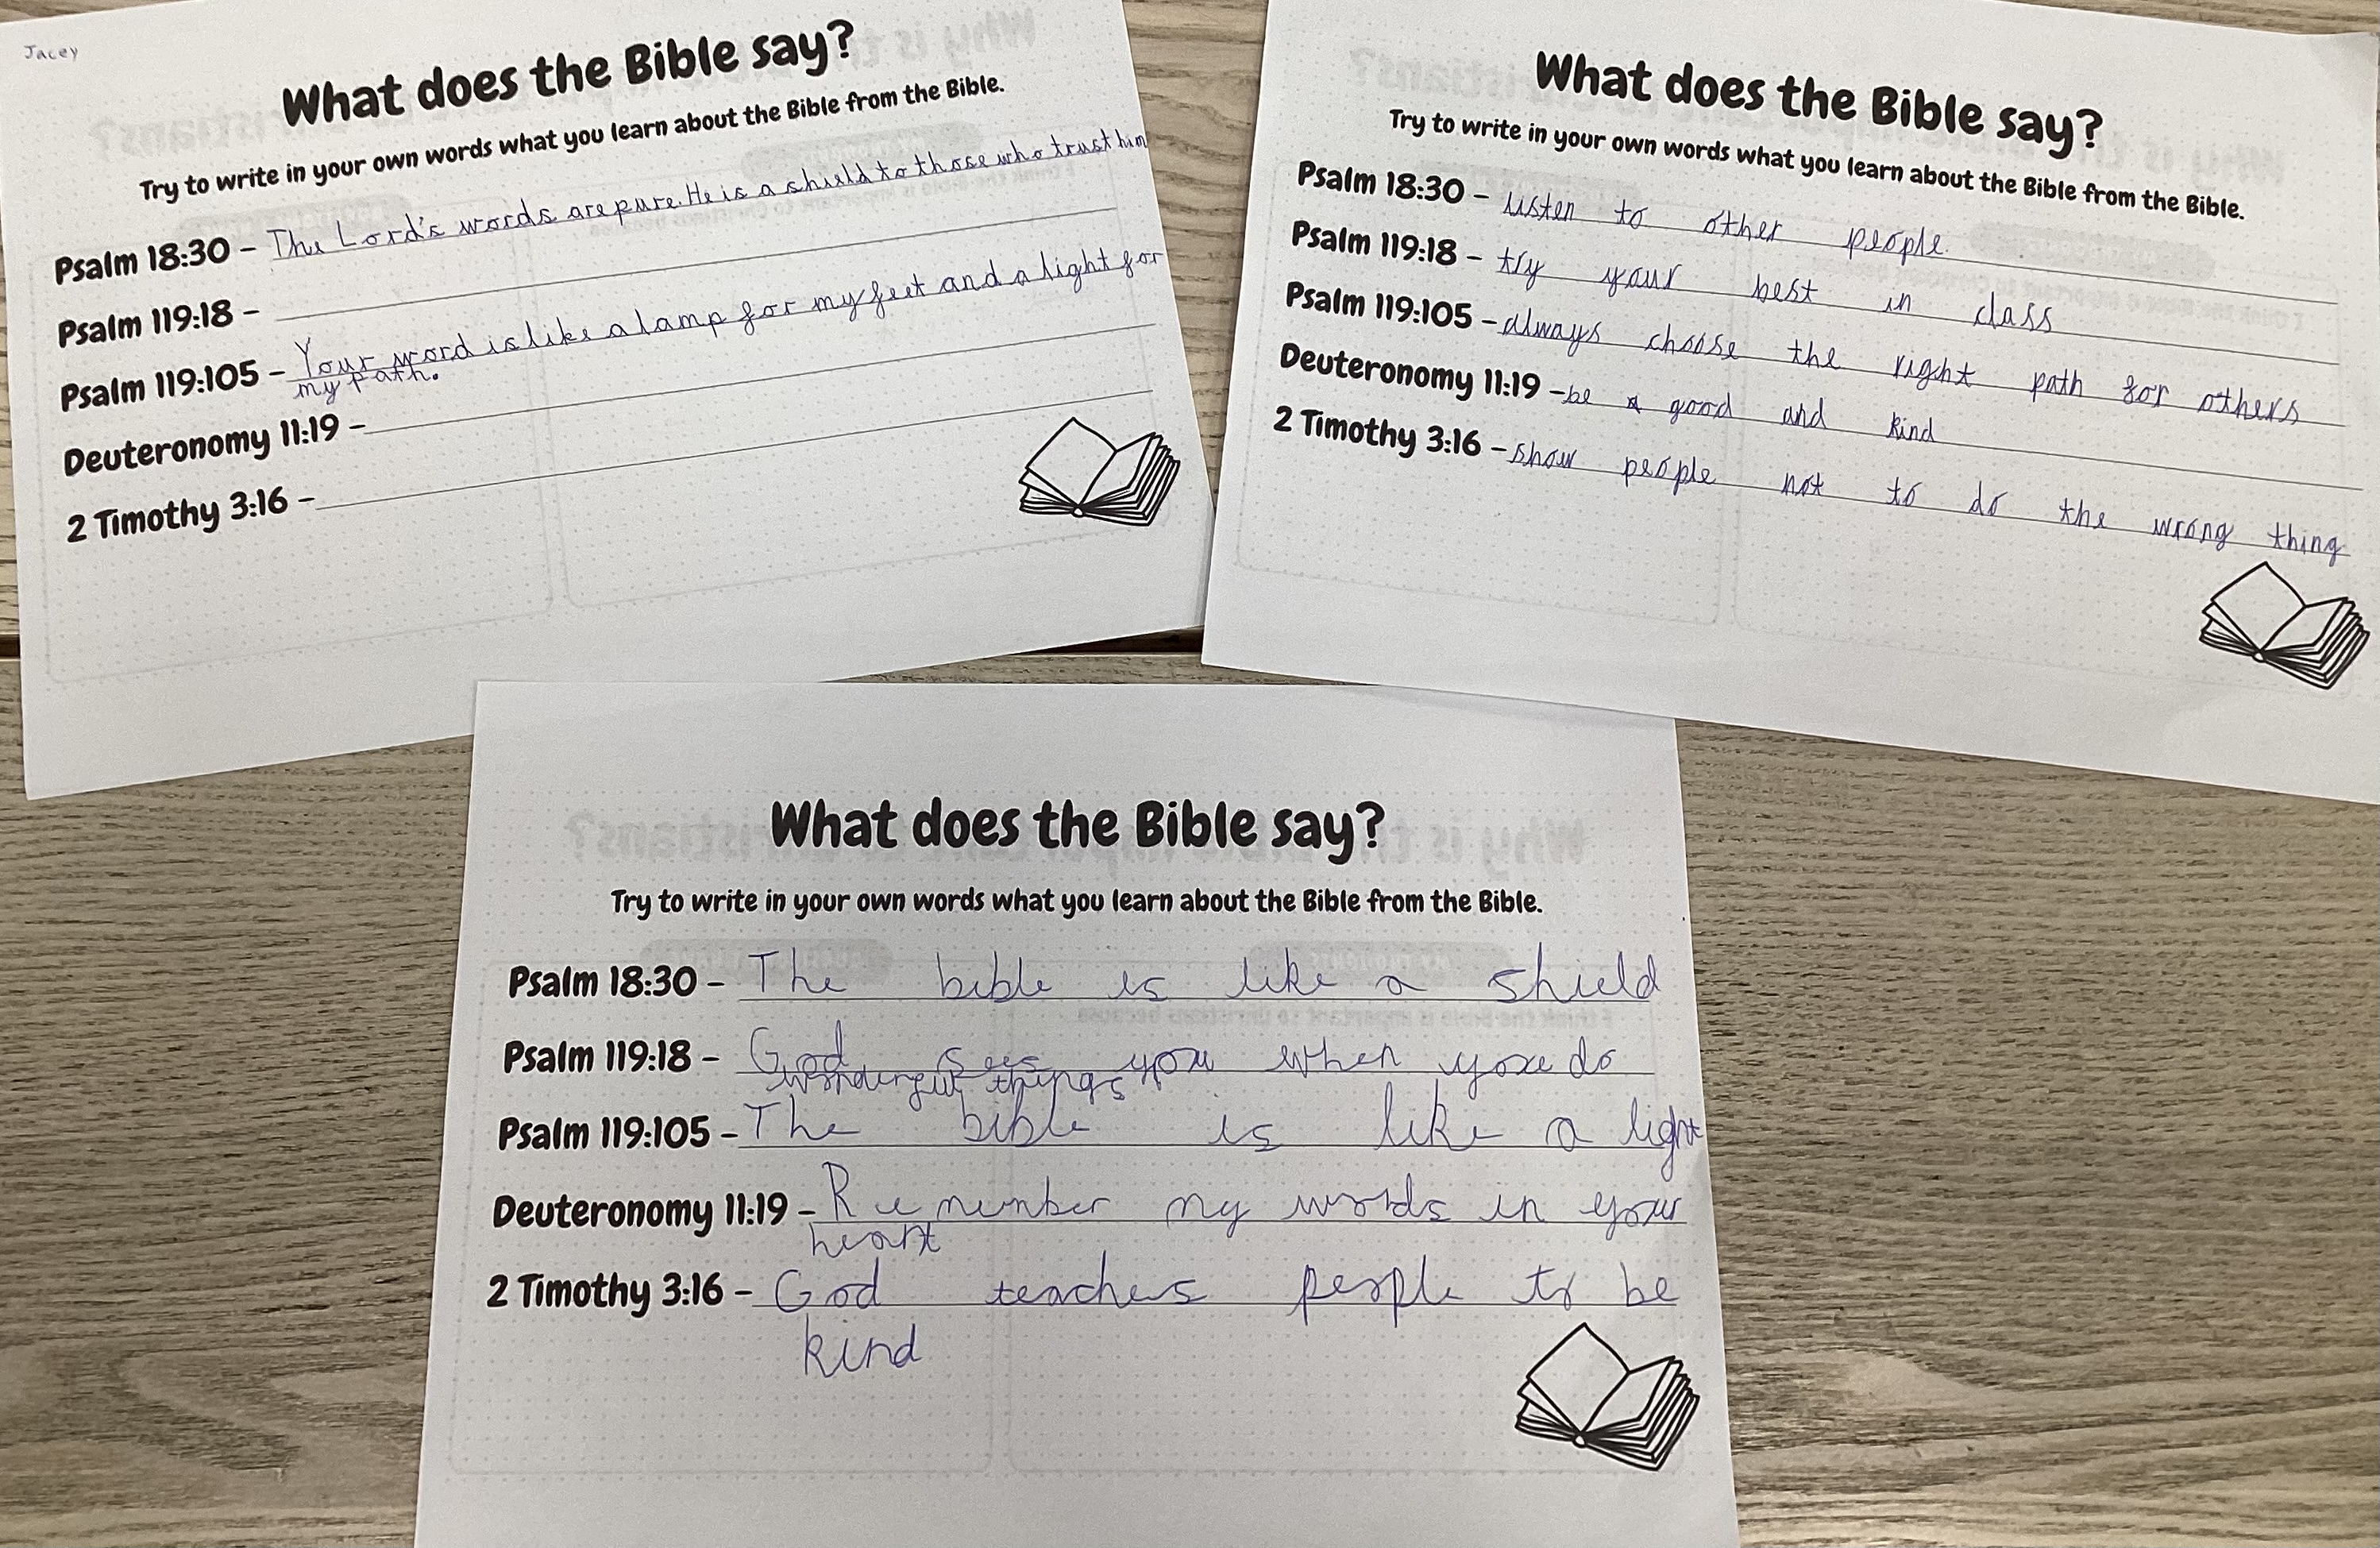 Jacey
What does the Bible say?
Try to write in your own words what you learn about the Bible from the Bible.
Psalm 18:30 - The Lord's words are pure. He is a shield to those who trust him
Psalm 119:18 -
Psalm 119:105 - Your word is like a lamp for my feet and a light for
my path.
Deuteronomy 11:19 -
2 Timothy 3:16 -
What does the Bible say?
Try to write in your own words what you learn about the Bible from the Bible.
Psalm 18:30 - listen to other people.
Psalm 119:18 - try your best in class
Psalm 119:105 - always choose the right path for others
Deuteronomy 11:19 - be a good and kind
2 Timothy 3:16 - show people not to do the wrong thing
What does the Bible say?
Try to write in your own words what you learn about the Bible from the Bible.
Psalm 18:30 - The bible is like a shield
Psalm 119:18 - God sees you when you do
wonderful things
Psalm 119:105 - The bible is like a light
Deuteronomy 11:19 - Remember my words in your
heart
2 Timothy 3:16 - God teaches people to be
kind